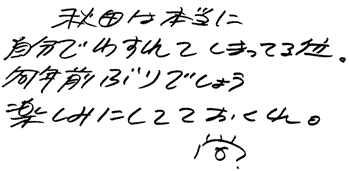 秋田は本当に
自分でわすれてしまってる位。
何年前ぶりでしょう
楽しみにしてておくれ。